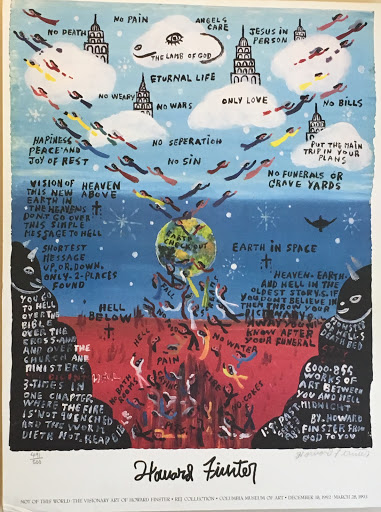 NO PAIN
ANGELS
CARE
JESUS IN
PERSON
NO DEATH
THE LAMB OF GOD
ETURNAL LIFE
NO WEARY
NO WARS
ONLY LOVE
NO BILLS
HAPINESS
PEACE AND
JOY OF REST
NO SEPERATION
NO SIN
PUT THE MAIN
TRIP IN YOUR
PLANS
NO FUNERALS OR
GRAVE YARDS
VISION OF
THIS NEW
EARTH IN
THE HEAVENS
DON,T GO OVER
THIS SIMPLE
MESSAGE TO HELL
HEAVEN
ABOVE
EARTH
CHECK OUT
EARTH IN SPACE
SHORTEST
MESSAGE
UP, OR, DOWN.
ONLY-2-PLACES
FOUND
HEAVEN-EARTH-
AND HELL IN THE
OLDEST STORY,S, IF
YOU DON,T BELIEVE IN
THEM THROW YOUR
YOU WILL
KNOW AFTER
YOUR FUNERAL
HELL
BELOW
YOU GO
TO HELL
OVER THE
BIBLE
OVER THE
CROSS-AND
AND OVER THE
CHURCH AND
MINISTERS
3-TIMES IN
ONE CHAPTER
WHERE THE FIRE
IS NOT QUENCHED
AND THE WORM
DIETH NOT. READ
HELL
NO WATER
PAIN
HELL,S
DEATH BED
6000-855
WORKS OF
ART BETWEEN
YOU AND HELL
MIDNIGHT
BY-HOWARD
FINSTER FROM
GOD TO YOU
Howard Finster
Howard Finster
NOT OF THIS WORLD: THE VISIONARY ART OF HOWARD FINSTER • REE COLLECTION • COLUMBIA MUSEUM OF ART • DECEMBER 18, 1992 - MARCH 28, 1993